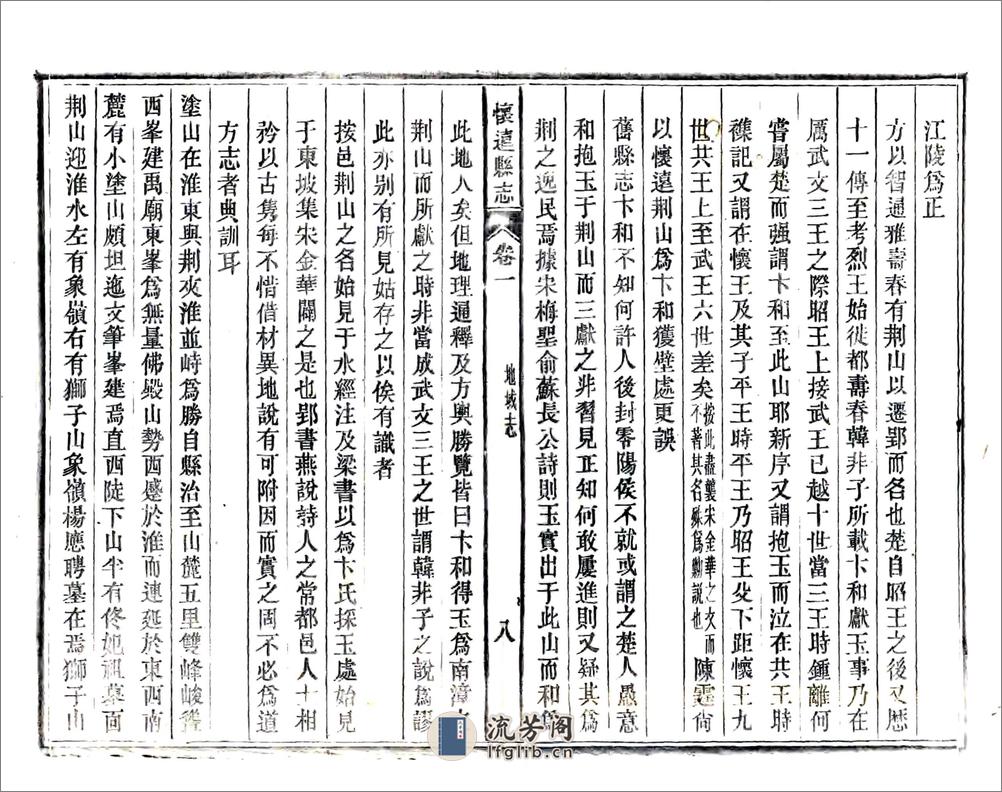 江陵爲正
方以智通雅壽春有荆山以遷郢而名也楚自昭王之後又歷
十一傳至考烈王始徙都壽春韓非子所載卞和獻玉事乃在
厲武文三王之際昭王上接武王已越十世當三王時鍾離何
嘗屬楚而强謂卞和至此山耶新序又謂抱玉而泣在共王時
襍記又謂在懷王及其子平王時平王乃昭王父下距懷王九
世共王上至武王六世差矣按此盡襲宋金華之文而不著其名殊爲勦說也陳霆尙
以懷遠荆山爲卞和獲璧處更誤
舊縣志卞和不知何許人後封零陽侯不就或謂之楚人愚意
和抱玉于荆山而三獻之非習見正知何敢屢進則又疑其爲
荆之逸民焉據宋梅聖俞蘇長公詩則玉實出于此山而和爲
懷遠縣志
卷一
地域志
八
此地人矣但地理通釋及方輿勝覽皆曰卞和得玉爲南漳
荆山而所獻之時非當成武文三王之世謂韓非子之說爲謬
此亦别有所見姑存之以俟有識者
按邑荆山之名始見于水經注及梁書以爲卞氏採玉處始見
于東坡集宋金華闢之是也郢書燕說詩人之常都邑人士相
矜以古雋每不惜借材異地說有可附因而實之固不必爲道
方志者典訓耳
塗山在淮東與荆夾淮並峙爲勝自縣治至山麓五里雙峰峻聳
西峯建禹廟東峯爲無量佛殿山勢西蹙於淮而連延於東西南
麓有小塗山頗坦迤文筆峯建焉直西陡下山半有佟妃祖墓面
荆山迎淮水左有象嶺右有獅子山象嶺楊應聘墓在焉獅子山
流芳阁
lfglib.cn